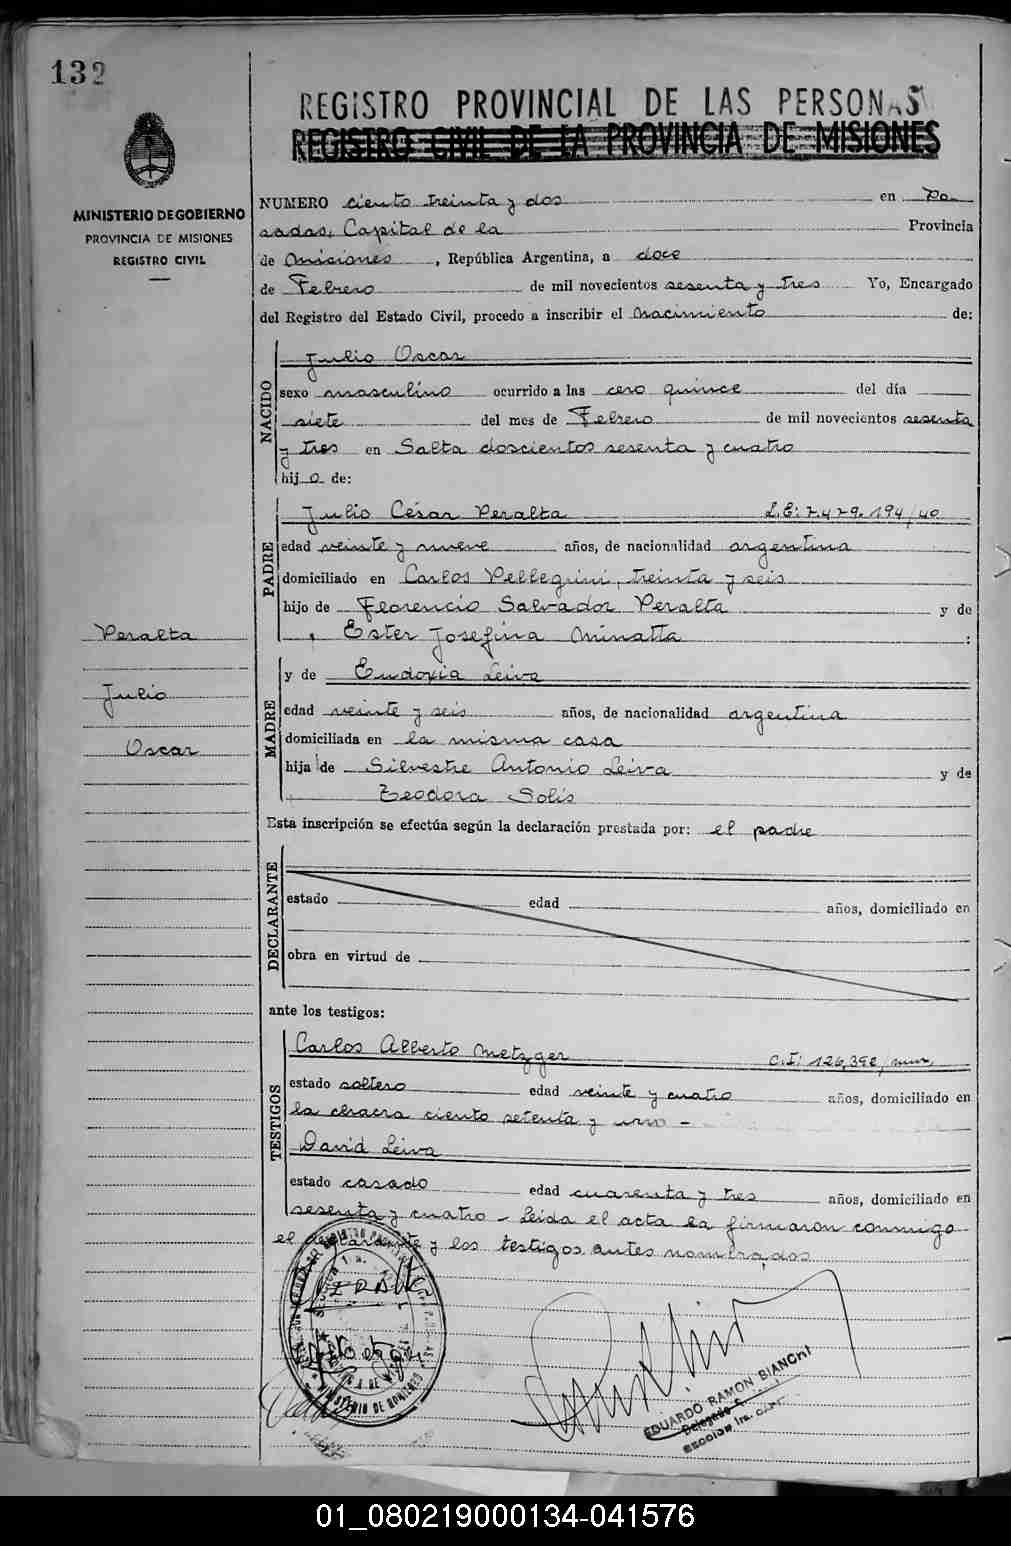 132
REGISTRO PROVINCIAL DE LAS PERSONAS
REGISTRO CIVIL DE LA PROVINCIA DE MISIONES
MINISTERIO DE GOBIERNO
PROVINCIA DE MISIONES
REGISTRO CIVIL
NUMERO ciento treinta y dos en Po-
sadas, Capital de la Provincia
de Misiones, República Argentina, a doce
de Febrero de mil novecientos sesenta y tres Yo, Encargado
del Registro del Estado Civil, procedo a inscribir el Nacimiento de:
NACIDO
Julio Oscar
sexo masculino ocurrido a las cero quince del día
siete del mes de Febrero de mil novecientos sesenta
y tres en Salta doscientos sesenta y cuatro
hijo de:
PADRE
Julio César Peralta L.E: 7.479.194/40
edad veinte y nueve años, de nacionalidad argentina
domiciliado en Carlos Pellegrini, treinta y seis
hijo de Florencio Salvador Peralta y de
Ester Josefina Minatta :
Peralta
Julio
Oscar
MADRE
y de Eudoxia Leiva
edad veinte y seis años, de nacionalidad argentina
domiciliada en la misma casa
hija de Silvestre Antonio Leiva y de
Teodora Solís
Esta inscripción se efectúa según la declaración prestada por: el padre
DECLARANTE
estado edad años, domiciliado en
obra en virtud de
ante los testigos:
TESTIGOS
Carlos Alberto Metzger C.I: 126,392/mnes,
estado soltero edad veinte y cuatro años, domiciliado en
la chacra ciento setenta y uno -
David Leiva
estado casado edad cuarenta y tres años, domiciliado en
sesenta y cuatro - Leida el acta la firmaron conmigo
el declarante y los testigos antes nombrados
EDUARDO RAMON BIANCHI
Delegado
01_080219000134-041576